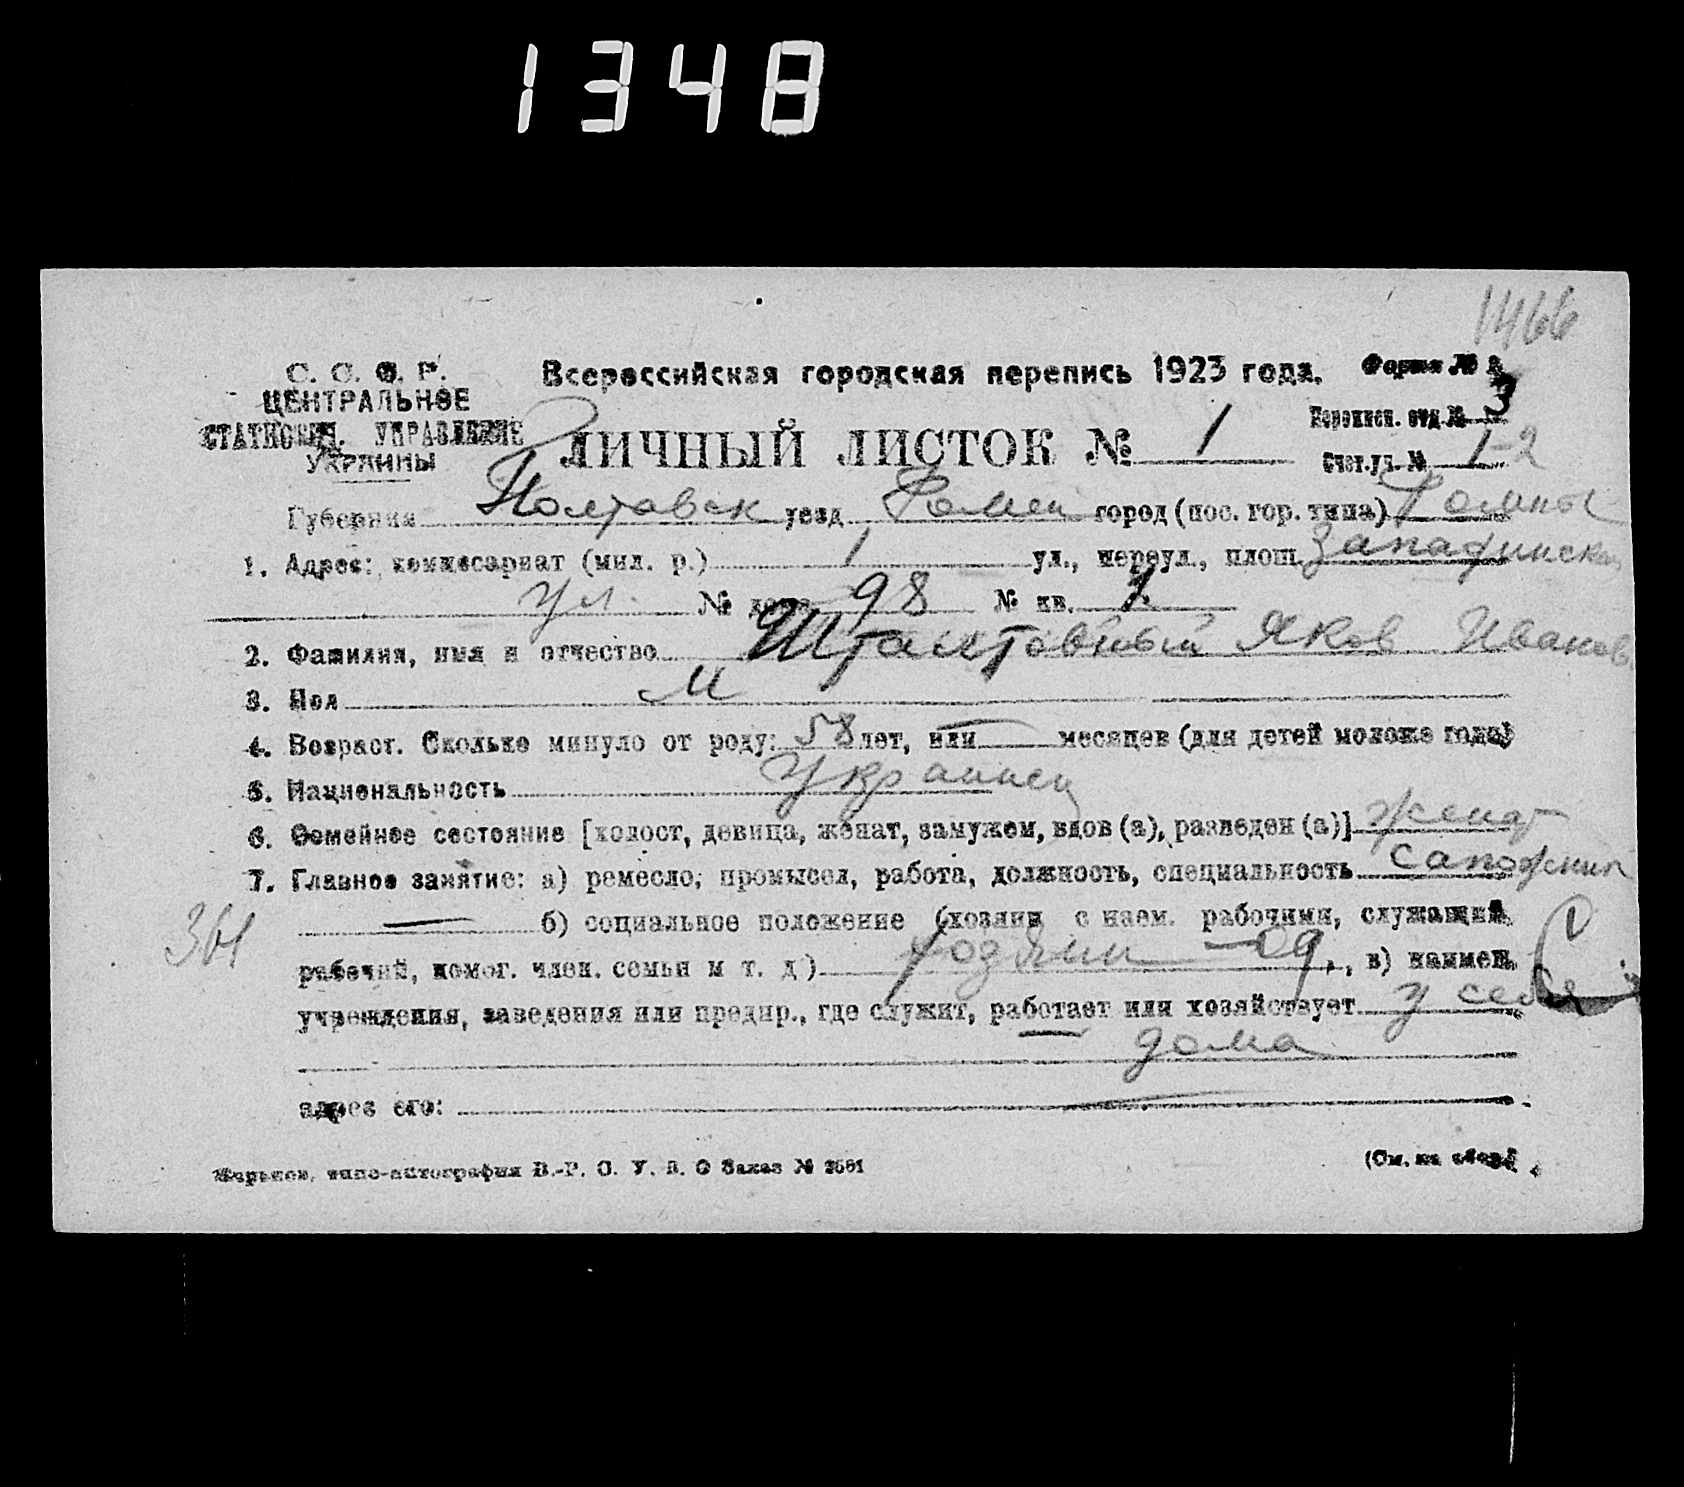 1348
1466
С. С. С. Р.
ЦЕНТРАЛЬНОЕ
СТАТИСТИЧ. УПРАВЛЕНИЕ
УКРАИНЫ
Всероссийская городская перепись 1923 года.
Форма № 2
Переписн. отд. № 3
ЛИЧНЫЙ ЛИСТОК № 1
Счет. уч. № 1-2
Губерния Полтавск уезд Ромен город (пос. гор. типа) Ромны
1. Адрес: комиссариат (мил. р.) 1 ул., переул., площ.
ул. № дома 98 № кв. 1
2. Фамилия, имя и отчество Яков Иванов
3. Пол М
4. Возраст. Сколько минуло от роду: 58 лет, или — месяцев (для детей моложе года)
5. Национальность Украинец
6. Семейное состояние [холост, девица, женат, замужем, вдов (а), разведен (а)] женат
7. Главное занятие: а) ремесло, промысел, работа, должность, специальность сапожник
— б) социальное положение (хозяин с наем. рабочими, служащий
рабочий, помог. член. семьи и т. д.) хозяин — од., в) наимен.
учреждения, заведения или предпр., где служит, работает или хозяйствует у себя
дома
адрес его: —
Харьков, типо-литография В.-Р. С. У. В. О Заказ №
(См. на обор.)